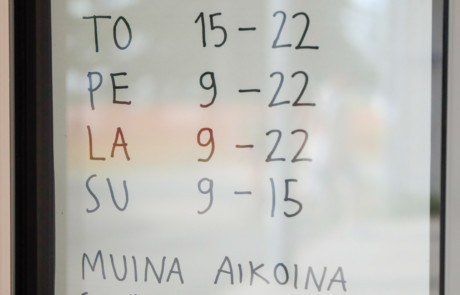 TO 15 – 22
PE 9 – 22
LA 9 – 22
SU 9 – 15
MUINA AIKOINA